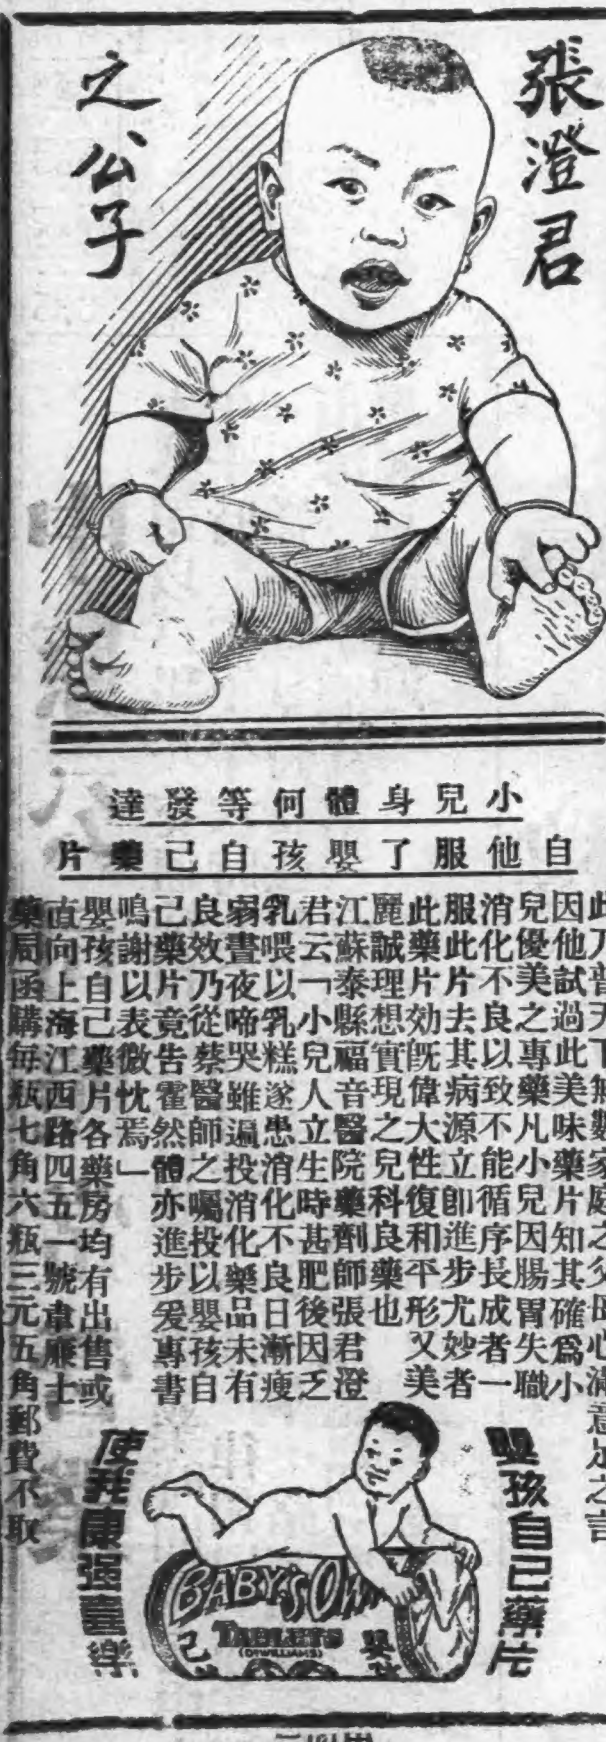 張澄君
之公子
小兒身體何等發達
自他服了嬰孩自己藥片
此乃普天下無數家庭之父母心滿意足之言
因他試過此美味藥片知其確爲小
兒優美之專藥凡小兒因腸胃失職
消化不良以致不能循序長成者一
服此片去其病源立卽進步尤妙者
此藥片効旣偉大性復和平形又美
麗誠理想實現之兒科良藥也
江蘇泰縣福音醫院藥劑師張君澄
君云「小兒人立生時甚肥後因乏
乳喂以乳糕遂患消化不良日漸瘦
弱晝夜啼哭雖遍投消化藥品未有
良效乃從蔡醫師之囑投以嬰孩自
己藥片竟告霍然體亦進步爰專書
鳴謝以表微忱焉」
嬰孩自己藥片各藥房均有出售或
直向上海江西路四五一號韋廉士
藥局函購每瓶七角六瓶三元五角郵費不取
嬰孩自己藥片
使我康强喜樂
BABY'S OWN
TABLETS
(DR WILLIAMS)